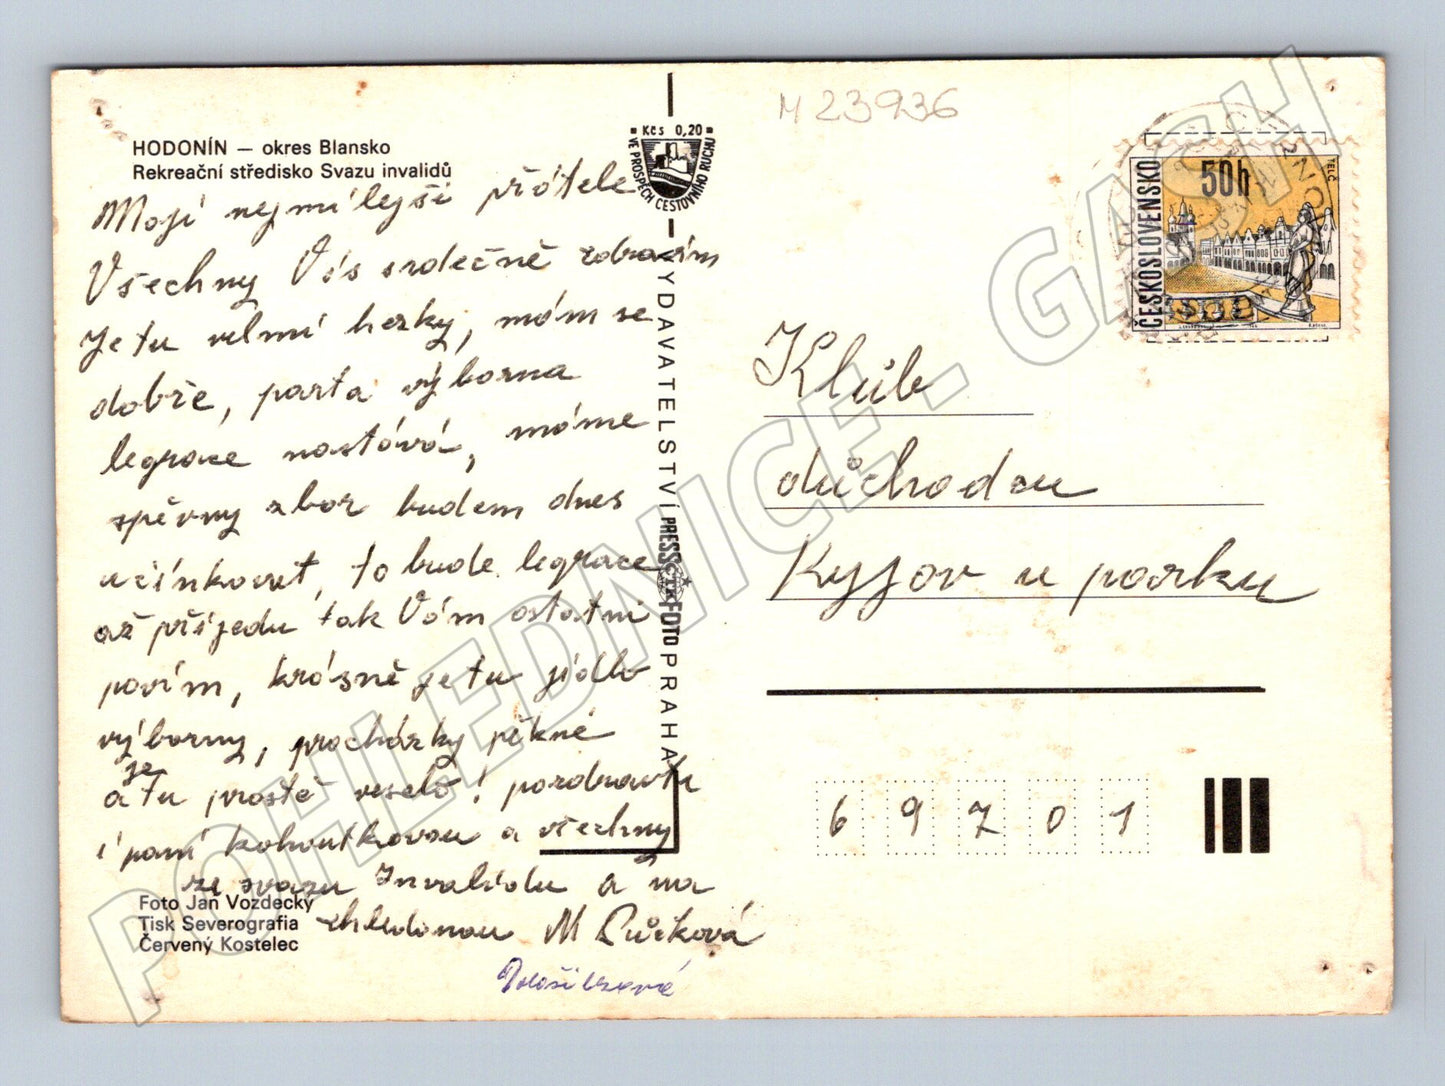 HODONÍN — okres Blansko
Rekreační středisko Svazu invalidů
Moji nejmilejší přátelé
Všechny Vás srdečně zdravím
Je tu velmi hezky, mám se
dobře, parta výborna
legrace nastává, máme
spěvny zbor budem dnes
učinkovat, to bude legrace
až přijedu tak Vám ostatni
povím, krásně je tu jídlo
výborny, procházky pěkné
a je tu prostě veselo! pozdravte
i paní kohoutkovou a všechny
ze svazu Invalidu a na
shledanou M
Foto Jan Vozdecký
Tisk Severografia
Červený Kostelec
Kčs 0,20
VE PROSPĚCH CESTOVNÍHO RUCHU
VYDAVATELSTVÍ PRESSFOTO PRAHA
ČTK
M 23936
ČESKOSLOVENSKO
50h
TELČ
Klub
důchodcu
Kyjov u parku
69701
POHLEDNICE - GASH